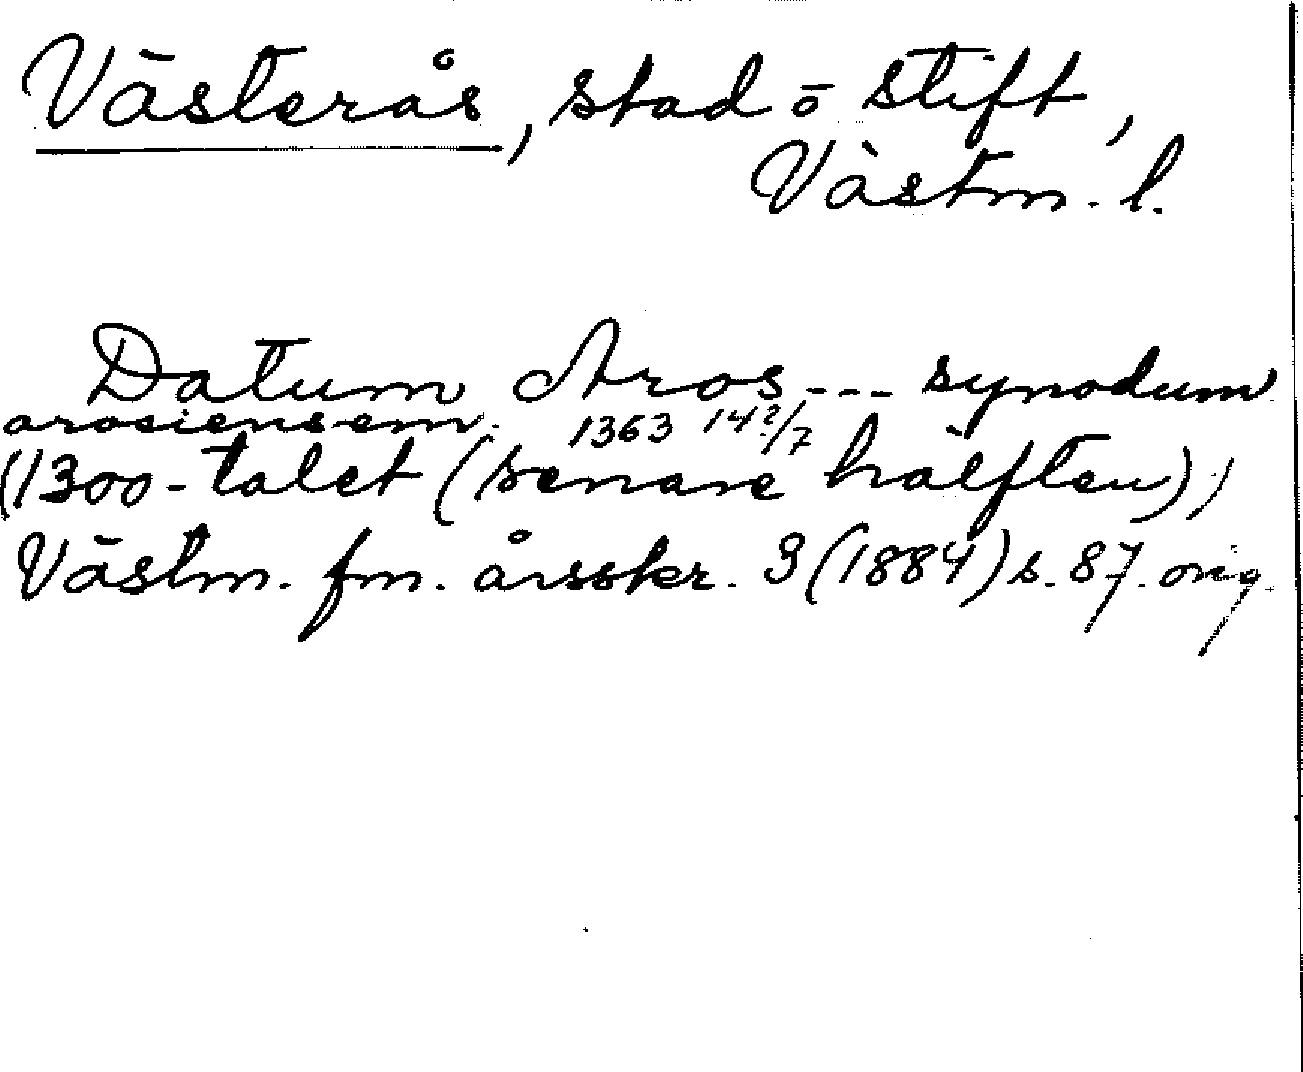 Västerås, stad o stift,
Västm. l.
Datum Aros--- synodum
arosiensem. 1363 14?/7
(1300-talet (senare hälften))
Västm. fm. årsskr. 3 (1884) s. 87. orig.